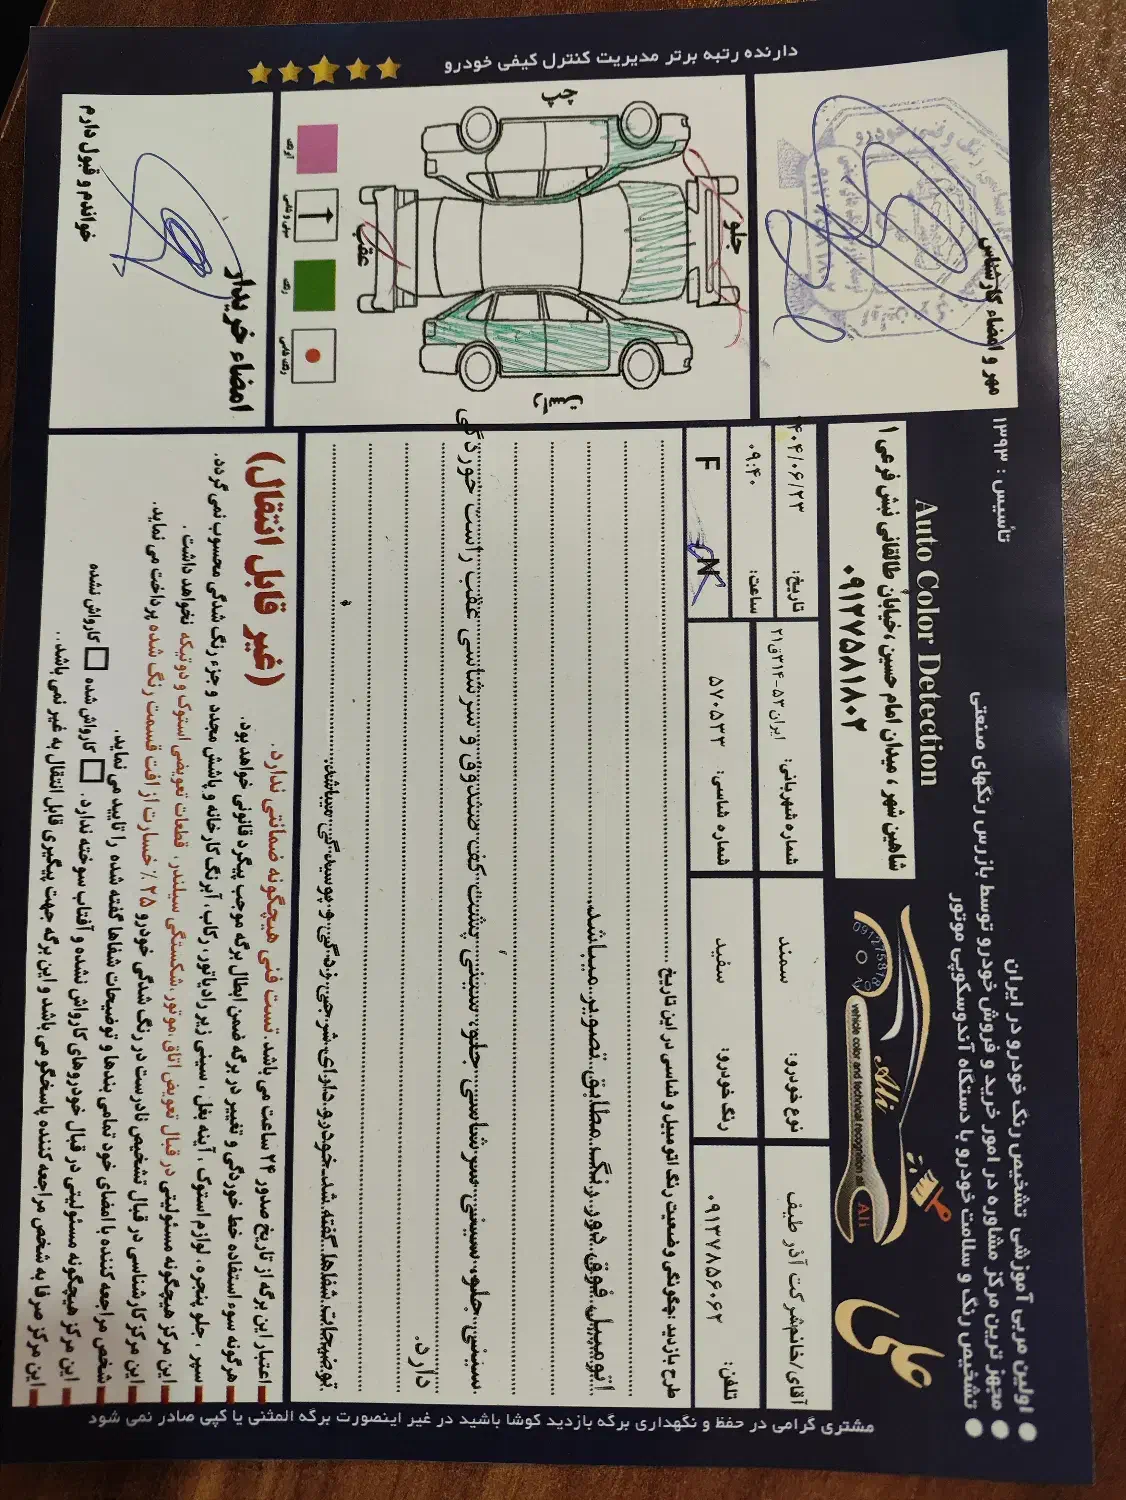 اولین مربی آموزشی تشخیص رنگ خودرو در ایران
مجهز ترین مرکز مشاوره در امور خرید و فروش خودرو توسط بازرس رنگهای صنعتی
تشخیص رنگ و سلامت خودرو با دستگاه آندوسکوپی موتور
تأسیس : ۱۳۹۳
علی
Ali
vehicle color and technical recognition ali
Ali
Auto Color Detection
شاهین شهر ، میدان امام حسین ،خیابان طالقانی نبش فرعی ۱
۰۹۱۲۷۵۸۱۸۰۲
آقای/خانم: شرکت آذر طیف
نوع خودرو: سمند
شماره شهربانی: ایران ۵۳-۳۱۴ق۲۱
تاریخ: ۴۰۴/۰۶/۲۳
ساعت: ۰۹:۴۰
تلفن: ۰۹۱۳۷۸۵۶۰۶۲
رنگ خودرو: سفید
شماره شاسی: ۵۷۰۵۳۳
N F
طرح بازدید :چگونگی وضعیت رنگ اتومبیل و شاسی در این تاریخ
اتومبیل فوق دور رنگ مطابق تصویر میباشد.
سینی جلو، سینی سرشاسی جلو، سینی پشت کف صندوق و سرشاسی عقب راست خوردگی
دارد.
توضیحات شفاها گفته شد خودرو دارای شرجی زدگی و پوسیدگی میباشد.
(غیر قابل انتقال)
اعتبار این برگه از تاریخ صدور ۲۴ ساعت می باشد. تست فنی هیچگونه ضمانتی ندارد.
هرگونه سوء استفاده خط خوردگی و تغییر در برگه ضمن ابطال برگه موجب پیگرد قانونی خواهد بود.
سپر ، جلو پنجره، لوازم استوک ، آینه بغل ، سینی زیر رادیاتور، رکاب، آبرنگ کارخانه و پاشش مجدد و جزء رنگ شدگی محسوب نمی گردد.
این مرکز هیچگونه مسئولیتی در قبال تعویض اتاق،موتور،شکستگی سیلندر ، قطعات تعویضی استوک و دوتیکه نخواهد داشت .
این مرکز کارشناسی در قبال تشخیص نادرست در رنگ شدگی خودرو ۲۵ ٪ خسارت از افت قسمت رنگ شده پرداخت می نماید.
شخص مراجعه کننده با امضای خود تمامی بندها و توضیحات شفاها گفته شده را تایید می نماید.
این مرکز هیچگونه مسئولیتی در قبال خودروهای کارواش نشده و آفتاب سوخته ندارد. کارواش شده کارواش نشده
این مرکز صرفا به شخص مراجعه کننده پاسخگو می باشد و این برگه جهت پیگیری قابل انتقال به غیر نمی باشد..
مهر و امضاء کارشناس
چپ
جلو
عقب
راست
رنگ
امضاء خریدار
خواندم و قبول دارم
دارنده رتبه برتر مدیریت کنترل کیفی خودرو
مشتری گرامی در حفظ و نگهداری برگه بازدید کوشا باشید در غیر اینصورت برگه المثنی یا کپی صادر نمی شود